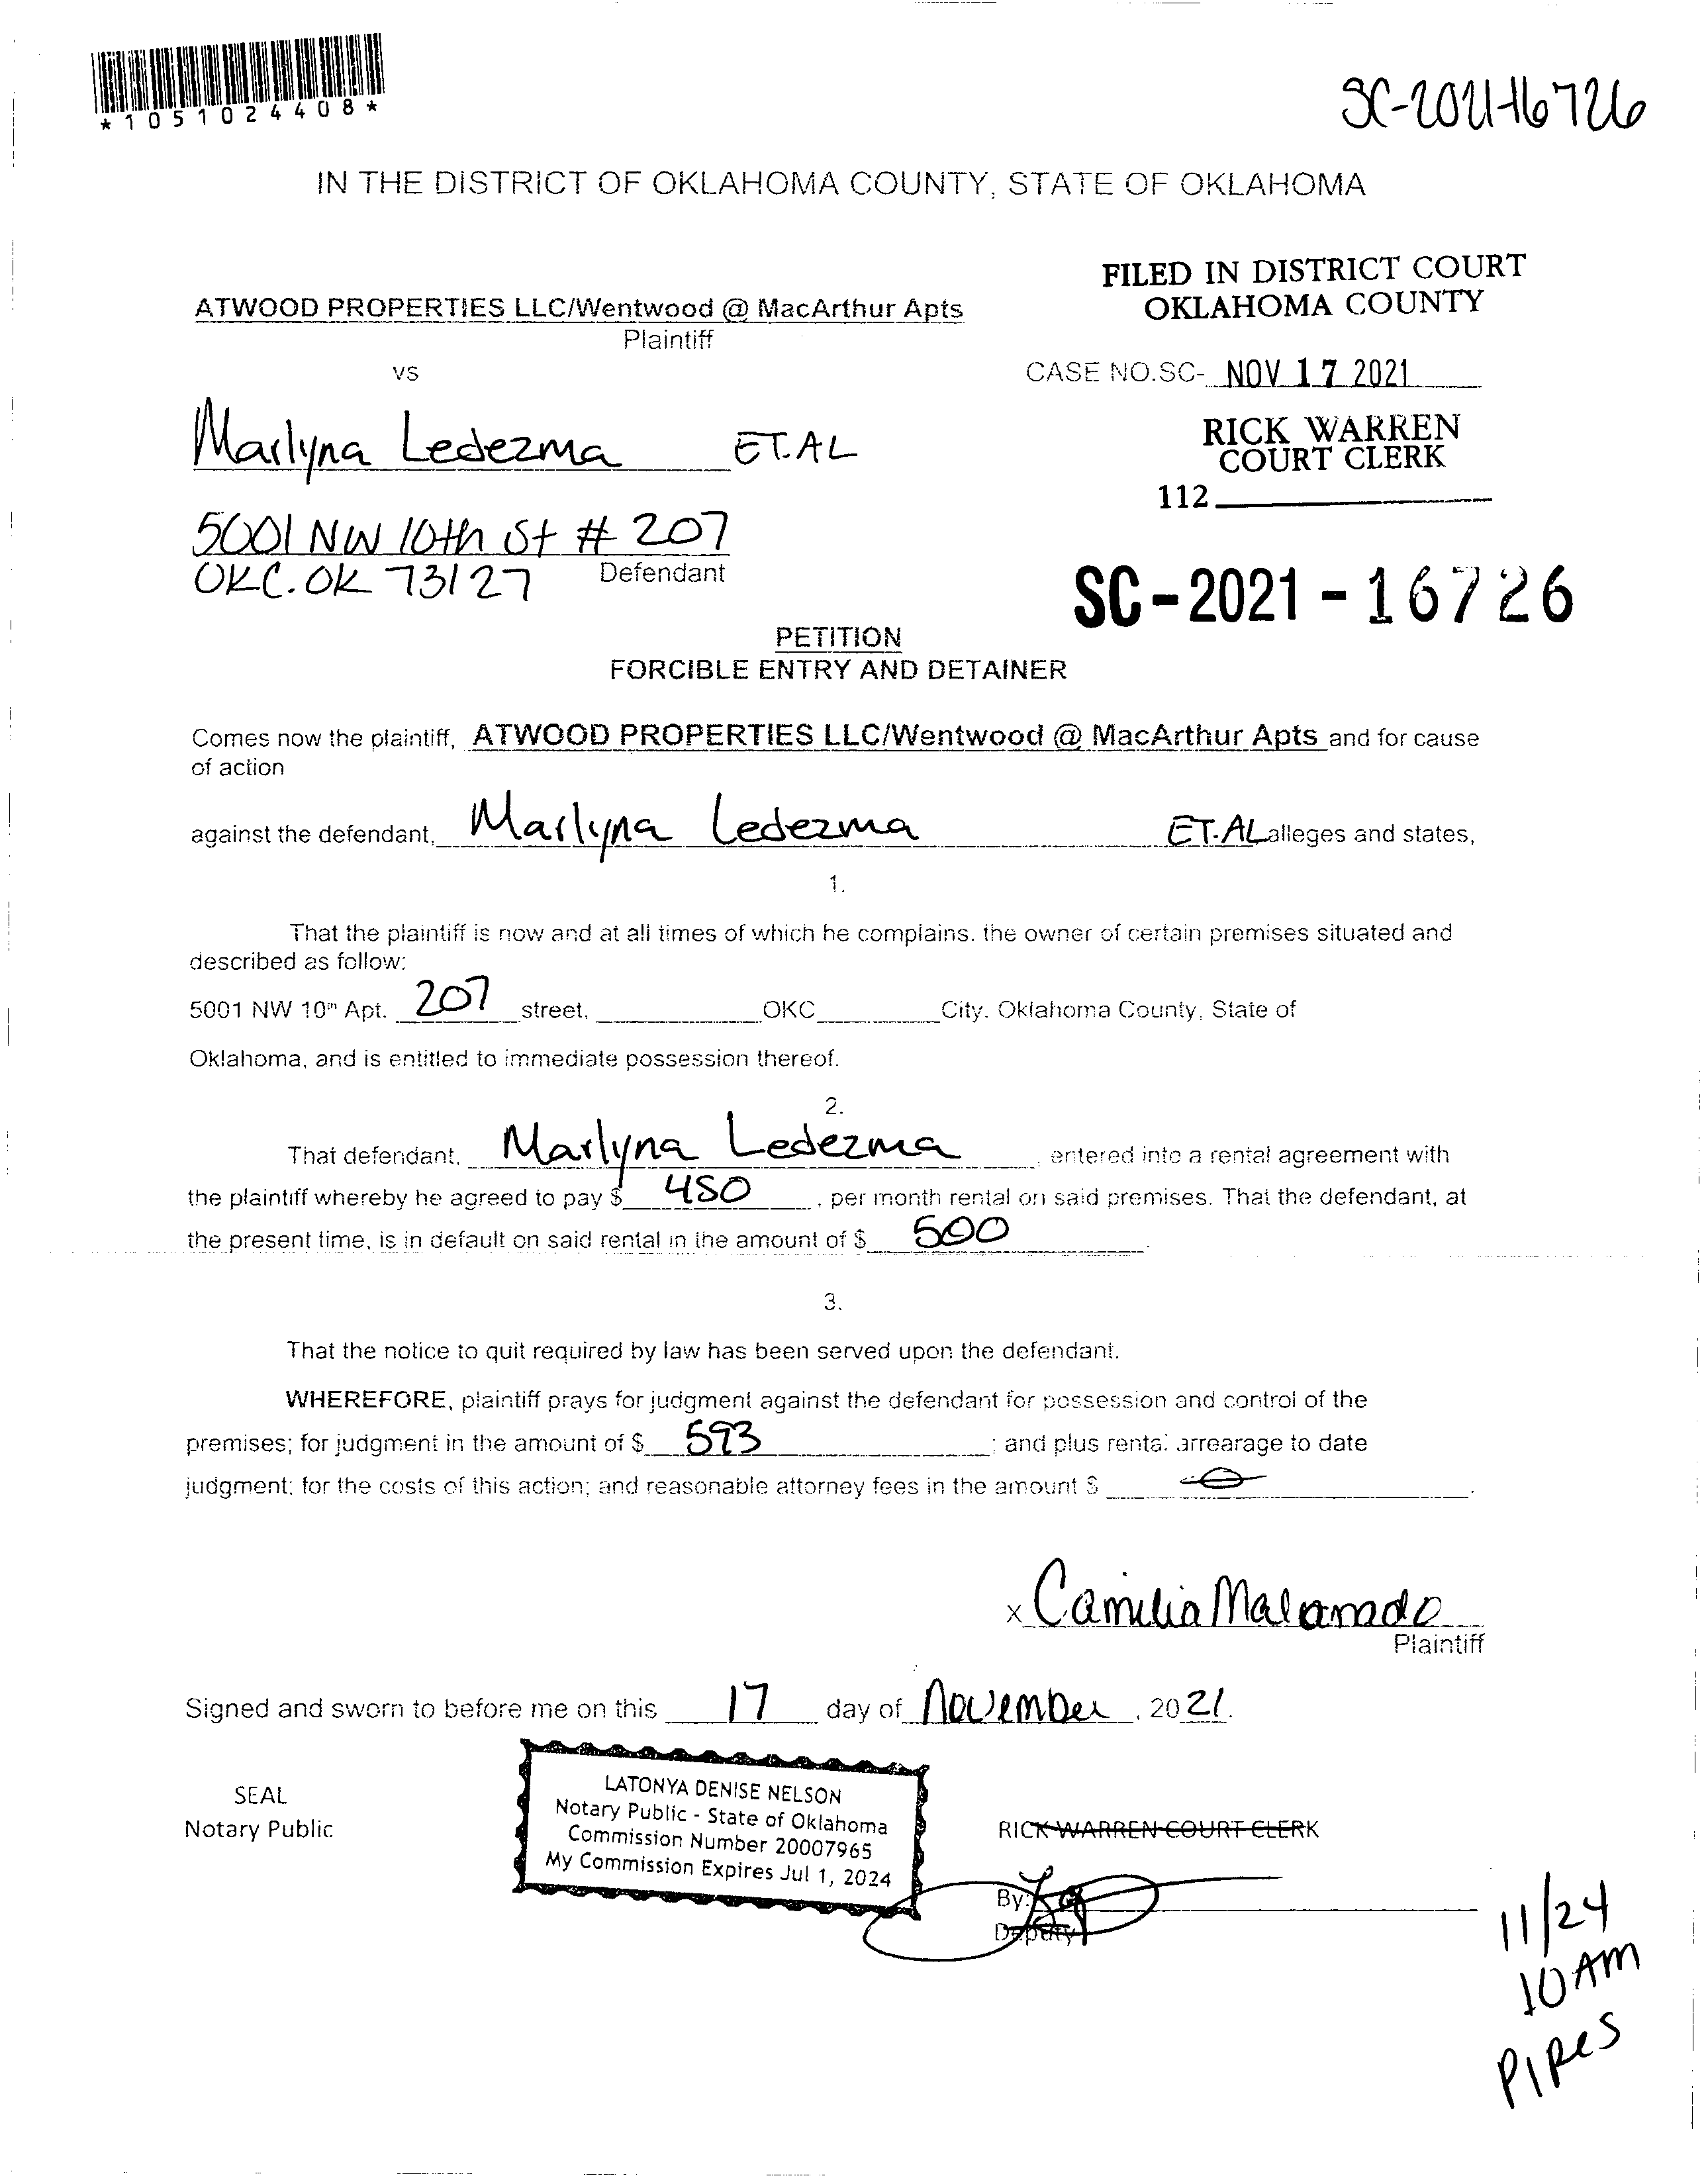 *1051024408*
SC-2021-16726
IN THE DISTRICT OF OKLAHOMA COUNTY, STATE OF OKLAHOMA
FILED IN DISTRICT COURT
OKLAHOMA COUNTY
ATWOOD PROPERTIES LLC/Wentwood @ MacArthur Apts
Plaintiff
vs
CASE NO.SC- NOV 17 2021
Marlyna Ledezma ET.AL
RICK WARREN
COURT CLERK
112
5001 NW 10th St # 207
OKC. OK 73127 Defendant
SC-2021-16726
PETITION
FORCIBLE ENTRY AND DETAINER
Comes now the plaintiff, ATWOOD PROPERTIES LLC/Wentwood @ MacArthur Apts and for cause
of action
against the defendant, Marlyna Ledezma ET.AL alleges and states,
1.
That the plaintiff is now and at all times of which he complains. the owner of certain premises situated and
described as follow:
5001 NW 10th Apt. 207 street, OKC City. Oklahoma County, State of
Oklahoma, and is entitled to immediate possession thereof.
2.
That defendant, Marlyna Ledezma, entered into a rental agreement with
the plaintiff whereby he agreed to pay $ 450, per month rental on said premises. That the defendant, at
the present time, is in default on said rental in the amount of $ 500.
3.
That the notice to quit required by law has been served upon the defendant.
WHEREFORE, plaintiff prays for judgment against the defendant for possession and control of the
premises; for judgment in the amount of $ 593; and plus rental arrearage to date
judgment; for the costs of this action; and reasonable attorney fees in the amount $ 0.
x Camilia
Plaintiff
Signed and sworn to before me on this 17 day of November, 2021.
LATONYA DENISE NELSON
Notary Public - State of Oklahoma
Commission Number 20007965
My Commission Expires Jul 1, 2024
SEAL
Notary Public
RICK WARREN COURT CLERK
By:
Deputy
11/24
10 AM
PIRES